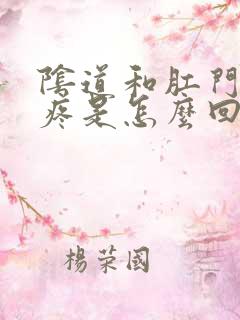 陰道和肛門
疼是怎麼回
楊榮國